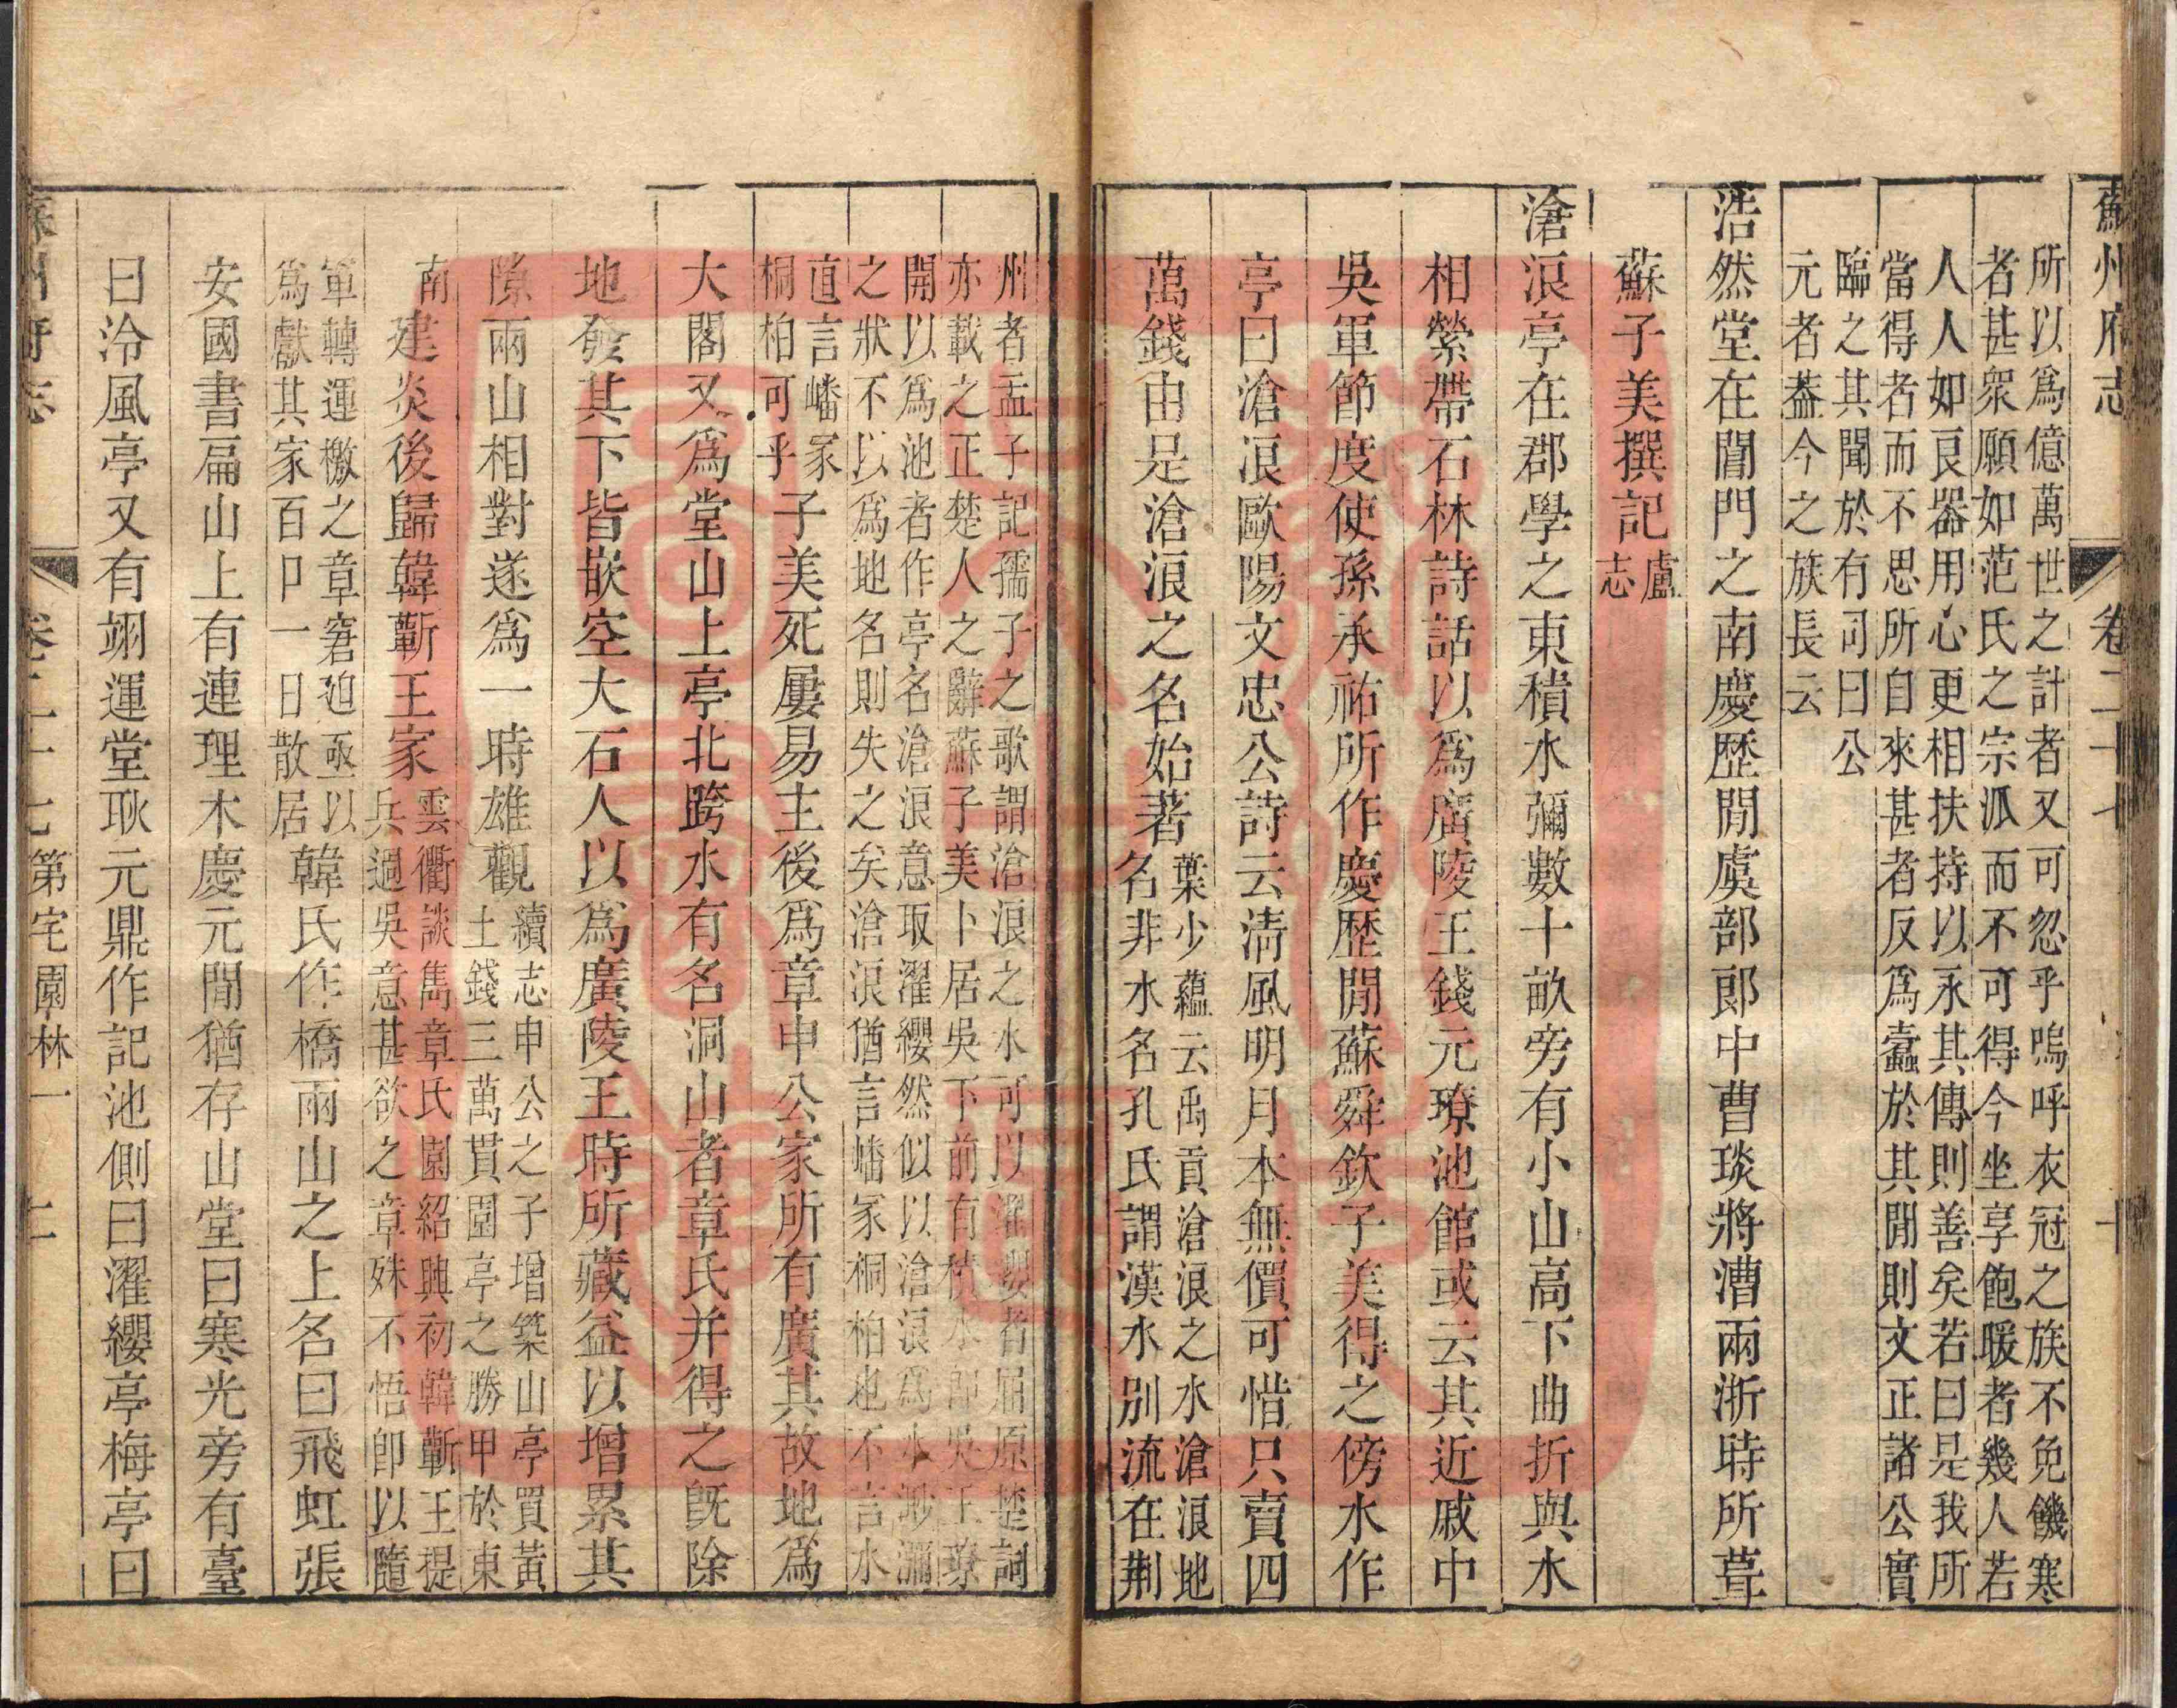 蘇州府志 卷二十七 十
所以爲億萬世之計者又可忽乎嗚呼衣冠之族不免饑寒
者甚衆願如范氏之宗派而不可得今坐享飽暖者幾人若
人人如良器用心更相扶持以永其傳則善矣若曰是我所
當得者而不思所自來甚者反爲蠹於其閒則文正諸公實
臨之其聞於有司曰公
元者葢今之族長云
浩然堂在閶門之南慶歷閒虞部郎中曹琰將漕兩浙時所葺
蘇子美撰記盧
志
滄浪亭在郡學之東積水彌數十畝旁有小山高下曲折與水
相縈帶石林詩話以爲廣陵王錢元璙池館或云其近戚中
吳軍節度使孫承祐所作慶歷閒蘇舜欽子美得之傍水作
亭曰滄浪歐陽文忠公詩云淸風明月本無價可惜只賣四
萬錢由是滄浪之名始著葉少蘊云禹貢滄浪之水滄浪地
名非水名孔氏謂漢水別流在荆
州者孟子記孺子之歌謂滄浪之水可以濯纓者屈原楚詞
亦載之正楚人之辭蘇子美卜居吳下前有積水卽吳王璙
開以爲池者作亭名滄浪意取濯纓然似以滄浪爲水渺瀰
之狀不以爲地名則失之矣滄浪猶言嶓冢桐柏也不言水
直言嶓冢
桐柏可乎子美死屢易主後爲章申公家所有廣其故地爲
大閣又爲堂山上亭北跨水有名洞山者章氏并得之旣除
地發其下皆嵌空大石人以爲廣陵王時所藏益以增累其
隙兩山相對遂爲一時雄觀續志申公之子增築山亭買黃
土錢三萬貫園亭之勝甲於東
南建炎後歸韓蘄王家雲衢談雋章氏園紹興初韓蘄王提
兵過吳意甚欲之章殊不悟卽以隨
軍轉運檄之章窘迫亟以
爲獻其家百口一日散居韓氏作橋兩山之上名曰飛虹張
安國書扁山上有連理木慶元閒猶存山堂曰寒光旁有臺
曰冷風亭又有翊運堂耿元鼎作記池側曰濯纓亭梅亭曰
蘇州府志 卷二十七第宅園林一 十一